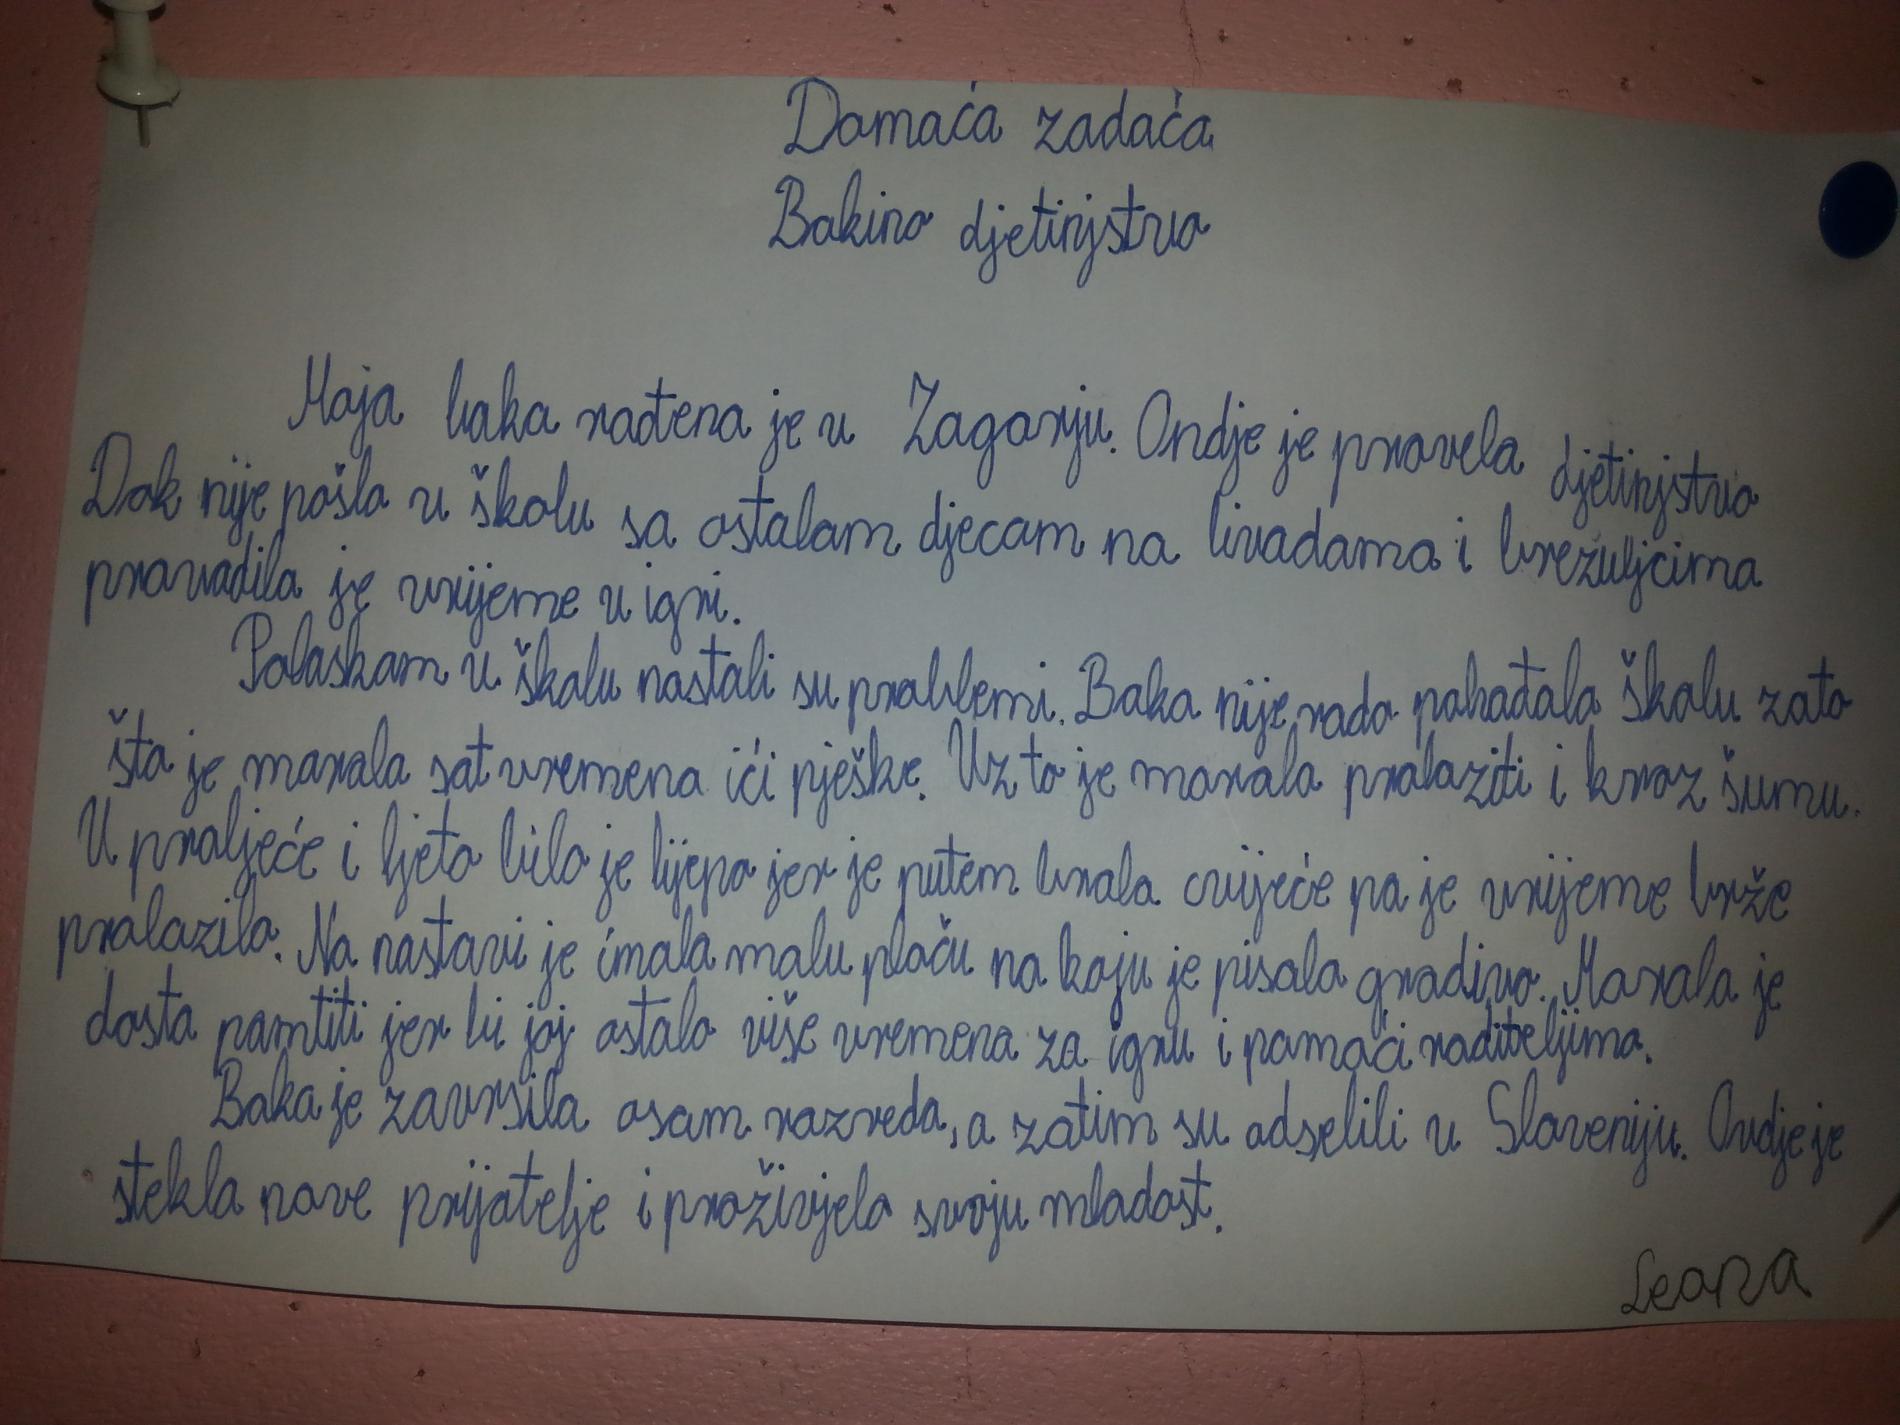 Domaća zadaća
Bakino djetinjstvo
Moja baka rođena je u Zagorju. Ondje je provela djetinjstvo
Dok nije pošla u školu sa ostalom djecom na livadama i brežuljcima
provodila je vrijeme u igri.
Polaskom u školu nastali su problemi. Baka nije rado pohađala školu zato
što je morala sat vremena ići pješke. Uz to je morala prolaziti i kroz šumu.
U proljeće i ljeto bilo je lijepo jer je putem brala cvijeće pa je vrijeme brže
prolazilo. Na nastavi je imala malu ploču na koju je pisala gradivo. Morala je
dosta pamtiti jer bi joj ostalo više vremena za igru i pomoći roditeljima.
Baka je završila osam razreda, a zatim su odselili u Sloveniju. Ovdje je
stekla nove prijatelje i proživjela svoju mladost.
Leona